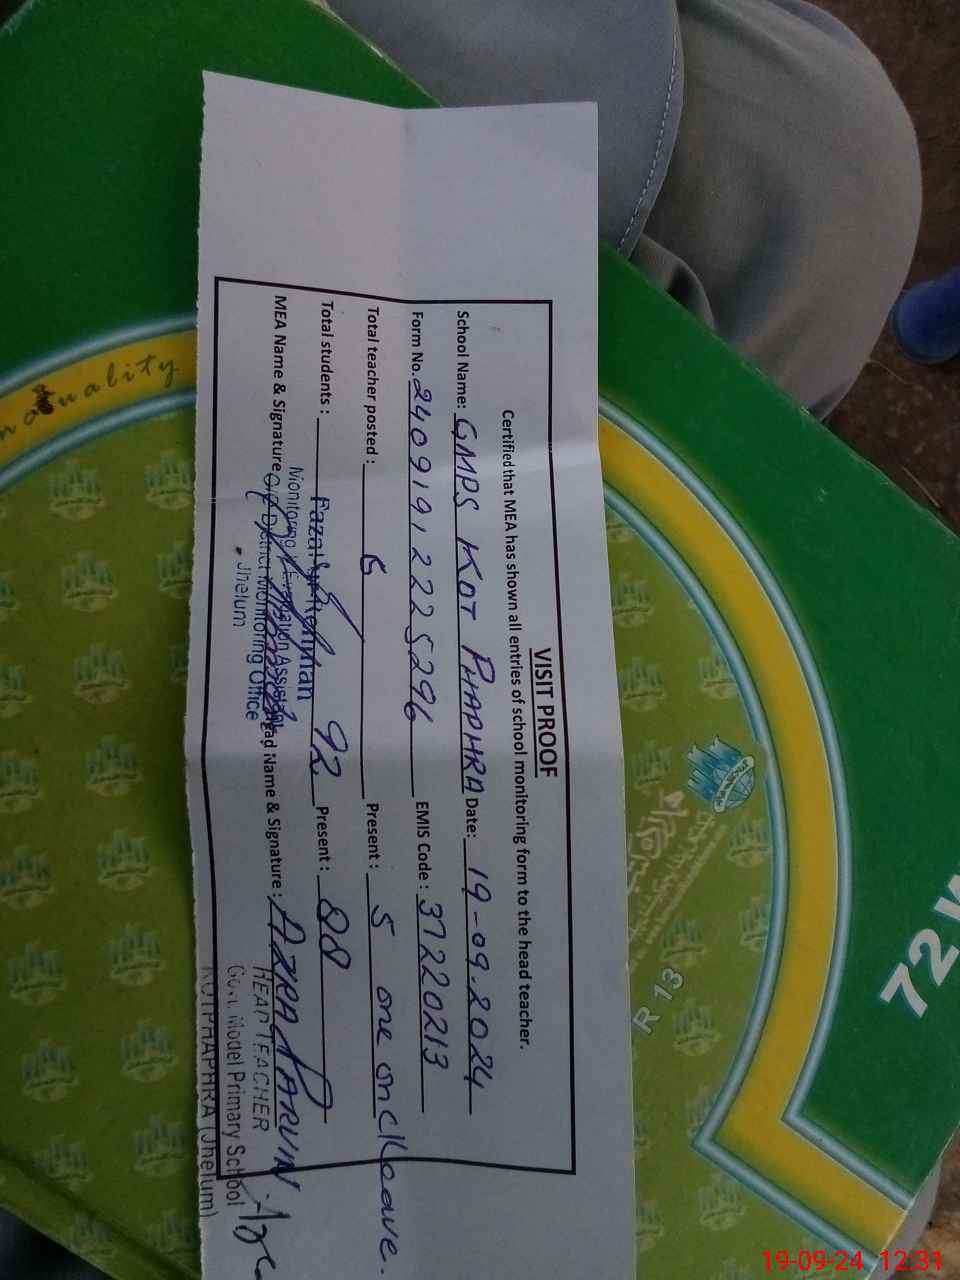 VISIT PROOF
Certified that MEA has shown all entries of school monitoring form to the head teacher.
School Name: GMPS KOT PHAPHRA Date: 19-09.2024
Form No. 24091912225296 EMIS Code: 37220213
Total teacher posted: 6 Present: 5 one on C/Leave.
Total students: 92 Present: 88
MEA Name & Signature Head Name & Signature: AZRA PARVIN
Monitoring Assistant
District Monitoring Office
Jhelum
HEAD TEACHER
Govt. Model Primary School
KOT PHAPHRA (Jhelum)
quality
72
R 13
19-09-24 12:31